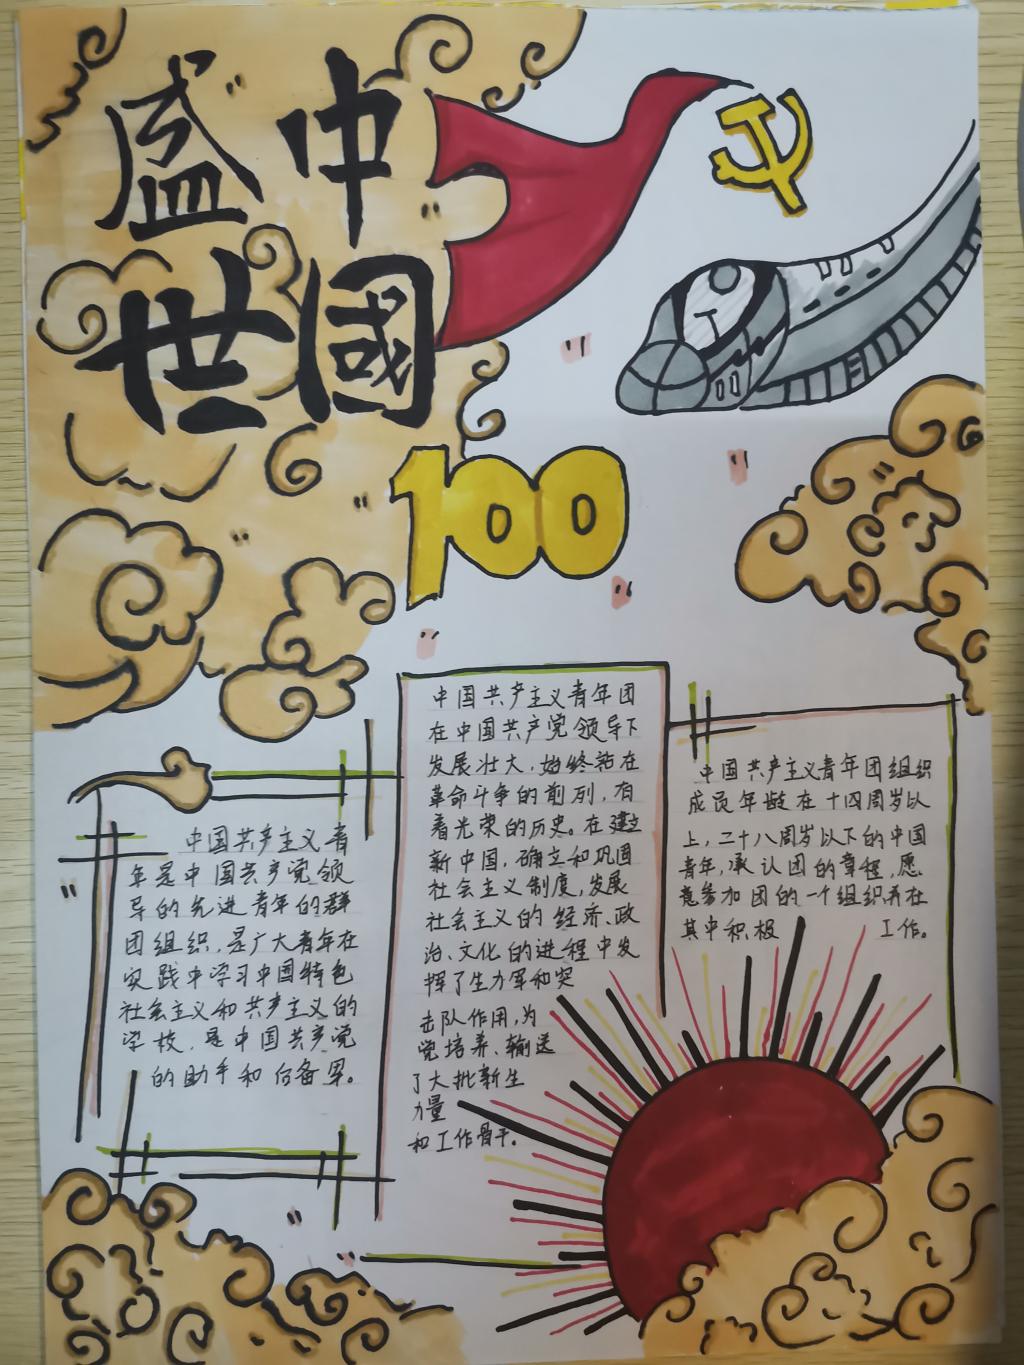 盛中
世國
100
中国共产主义青
年是中国共产党领
导的先进青年的群
团组织，是广大青年在
实践中学习中国特色
社会主义和共产主义的
学校，是中国共产党
的助手和后备军。
中国共产主义青年团
在中国共产党领导下
发展壮大，始终站在
革命斗争的前列，有
着光荣的历史。在建立
新中国，确立和巩固
社会主义制度，发展
社会主义的经济、政
治、文化的进程中发
挥了生力军和突
击队作用，为
党培养、输送
了大批新生
力量
和工作骨干。
中国共产主义青年团组织
成员年龄在十四周岁以
上，二十八周岁以下的中国
青年，承认团的章程，愿
意参加团的一个组织并在
其中积极 工作。